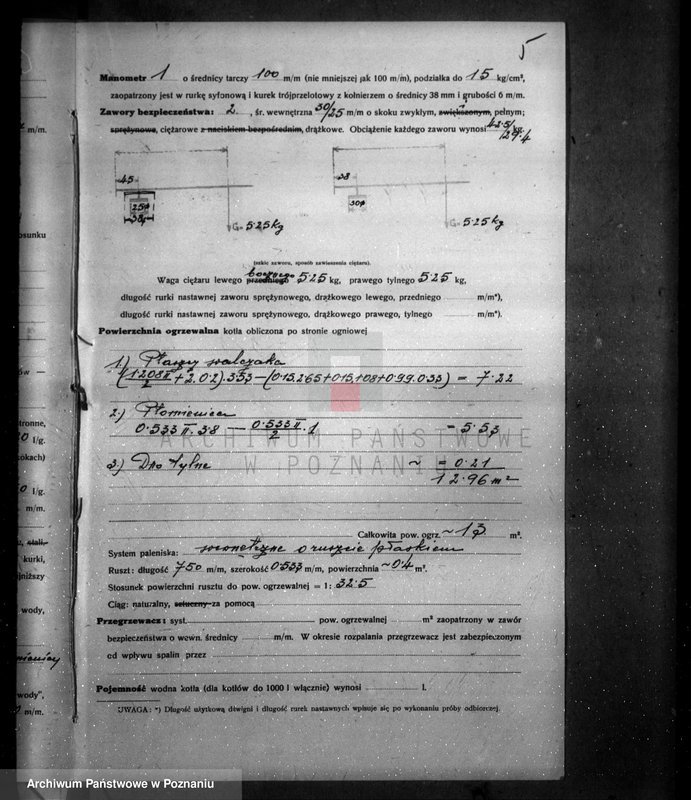 5
Manometr 1 o średnicy tarczy 100 m/m (nie mniejszej jak 100 m/m), podziałka do 15 kg/cm²,
zaopatrzony jest w rurkę syfonową i kurek trójprzelotowy z kołnierzem o średnicy 38 mm i grubości 6 m/m.
Zawory bezpieczeństwa: 2, śr. wewnętrzna 30/25 m/m o skoku zwykłym, zwiększonym, pełnym;
sprężynowe, ciężarowe z naciskiem bezpośrednim, drążkowe. Obciążenie każdego zaworu wynosi 42.5/29.4 kg.
45
38
25φ
38φ
30φ
G = 5.25 kg
G = 5.25 kg
(szkic zaworu, sposób zawieszenia ciężaru).
bocznego
Waga ciężaru lewego przedniego 5.25 kg, prawego tylnego 5.25 kg,
długość rurki nastawnej zaworu sprężynowego, drążkowego lewego, przedniego m/m*),
długość rurki nastawnej zaworu sprężynowego, drążkowego prawego, tylnego m/m*).
Powierzchnia ogrzewalna kotła obliczona po stronie ogniowej
1) Płaszcz walczaka
(1.208 π/2 + 2.0.2).3.53 — (0.15.2.65+0.15.1.08+0.99.0.33) = 7.22
2.) Płomienica
0.533 π. 3.8 — 0.533 π/2 .1 = 5.53
3) Dno tylne ~ = 0.21
12.96 m²
Całkowita pow. ogrz. ~ 13 m².
System paleniska: wewnętrzne o ruszcie płaskiem
Ruszt: długość 750 m/m, szerokość 0.533 m/m, powierzchnia ~0.4 m².
Stosunek powierzchni rusztu do pow. ogrzewalnej = 1: 32.5
Ciąg: naturalny, sztuczny za pomocą
Przegrzewacz: syst. pow. ogrzewalnej m² zaopatrzony w zawór
bezpieczeństwa o wewn. średnicy m/m. W okresie rozpalania przegrzewacz jest zabezpieczonym
od wpływu spalin przez
Pojemność wodna kotła (dla kotłów do 1000 l włącznie) wynosi l.
UWAGA: *) Długość użytkową dźwigni i długość rurek nastawnych wpisuje się po wykonaniu próby odbiorczej.
m/m.
l/g.
l/g.
m/m.
kurki,
wody,
wody",
m/m.
ARCHIWUM PAŃSTWOWE
W POZNANIU
Archiwum Państwowe w Poznaniu